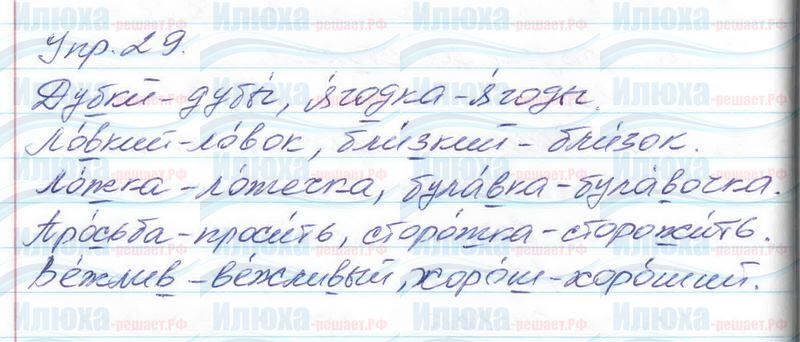 Упр. 29.
Дубки́ - дубы́, я́годка - я́годы.
Ло́вкий - ло́вок, бли́зкий - бли́зок.
Ло́жка - ло́жечка, була́вка - була́вочка.
Про́сьба - проси́ть, сторо́жка - сторожи́ть.
Ве́жлив - ве́жливый, хоро́ш - хоро́ший.
Илюха -решает.РФ